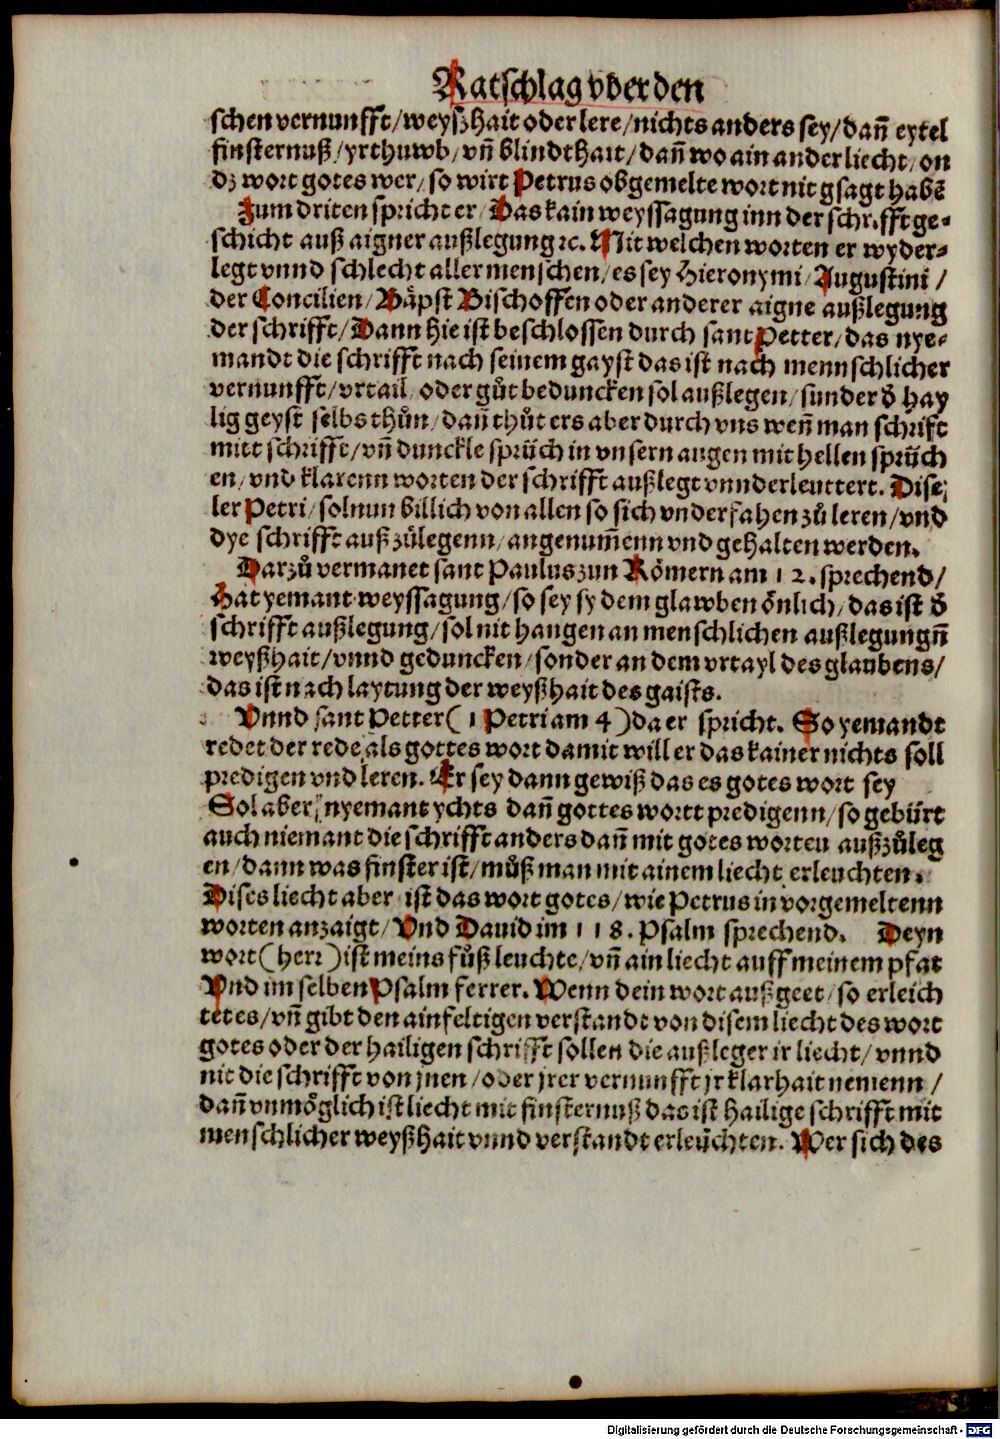 Ratschlag vber den
schen vernunfft/weyßhait oder lere/nichts anders sey/dañ eytel
finsternuß/yrthuwb/vñ blindthait/dañ wo ain ander liecht/on
dz wort gotes wer/so wirt Petrus obgemelte wort nit gsagt habē
Zum driten spricht er/Das kain weyssagung inn der schrifft ge-
schicht auß aigner außlegung ꝛc. Mit welchen worten er wyder-
legt vnnd schlecht aller menschen/es sey Hieronymi/Augustini/
der Concilien/Bäpst Bischoffen oder anderer aigne außlegung
der schrifft/Dann hie ist beschlossen durch sant Petter/das nye-
mandt die schrifft nach seinem gayst das ist nach mennschlicher
vernunfft/vrtail/oder gůt beduncken sol außlegen/sunder d̓ hay
lig geyst selbs thůn/dañ thůt ers aber durch vns weñ man schrift
mitt schrifft/vñ dunckle sprüch in vnsern augen mit hellen sprüch
en/vnd klarenn worten der schrifft außlegt vnnd erleuttert. Dise
ler Petri/sol nun billich von allen so sich vnderfahen zů leren/vnd
dye schrifft auß zůlegenn/angenum̄enn vnd gehalten werden.
Darzů vermanet sant Paulus zun Römern am 12. sprechend/
Hat yemant weyssagung/so sey sy dem glawben önlich/das ist d̓
schrifft außlegung/sol nit hangen an menschlichen außlegungñ
weyßhait/vnnd geduncken/sonder an dem vrtayl des glaubens/
das ist nach laytung der weyßhait des gaists.
Vnnd sant Petter (1 Petri am 4) da er spricht. So yemandt
redet der rede als gottes wort damit will er das kainer nichts soll
predigen vnd leren. Er sey dann gewiß das es gotes wort sey
Sol aber nyemant ychts dañ gottes wortt predigenn/so gebürt
auch niemant die schrifft anders dañ mit gotes worten außzůleg
en/dann was finster ist/můß man mit ainem liecht erleuchten.
Dises liecht aber ist das wort gotes/wie Petrus in vorgemeltenn
worten anzaigt/Vnd Dauid im 118. Psalm sprechend. Deyn
wort (herr) ist meins fůß leuchte/vñ ain liecht auff meinem pfat
Vnd im selben Psalm ferrer. Wenn dein wort außgeet/so erleich
tet es/vñ gibt den ainfeltigen verstandt von disem liecht des wort
gotes oder der hailigen schrifft sollen die außleger ir liecht/vnnd
nit die schrifft von jnen/oder jrer vernunfft jr klarhait nemenn/
dañ vnmöglich ist liecht mit finsternuß das ist hailige schrifft mit
menschlicher weyßhait vnnd verstandt erleüchten. Wer sich des
Digitalisierung gefördert durch die Deutsche Forschungsgemeinschaft - DFG